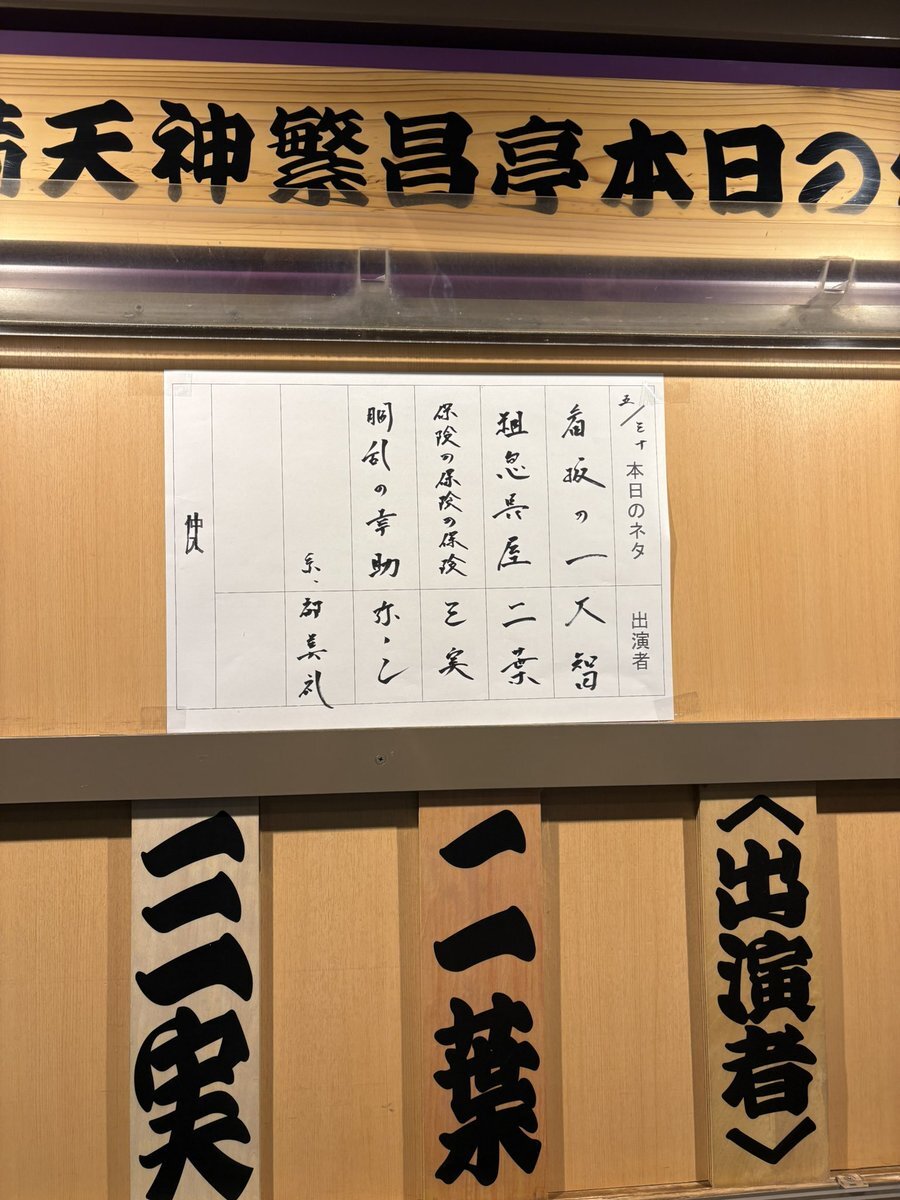 天神繁昌亭本日の
五/三十 本日のネタ 出演者
看板の一 大智
粗忽長屋 二葉
保険の保険の保険 三実
胴乱の幸助 弥っこ
仲入
〈出演者〉
二葉
三実